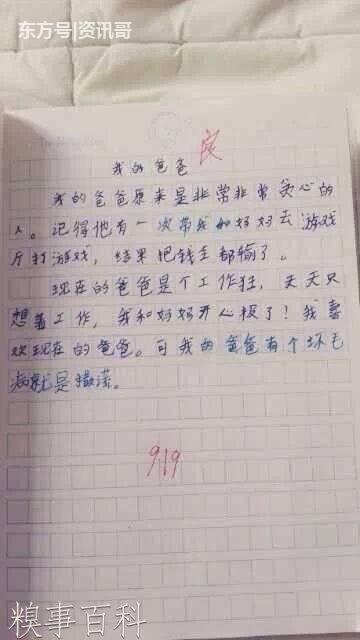 东方号|资讯哥
我的爸爸 良
我的爸爸原来是非常非常贪心的
人。记得他有一次带我和妈妈去游戏
厅打游戏，结果把钱全都输了。
现在的爸爸是个工作狂，天天只
想着工作，我和妈妈开心极了！我喜
欢现在的爸爸。可我的爸爸有个坏毛
病就是撒谎。
9.19
糗事百科